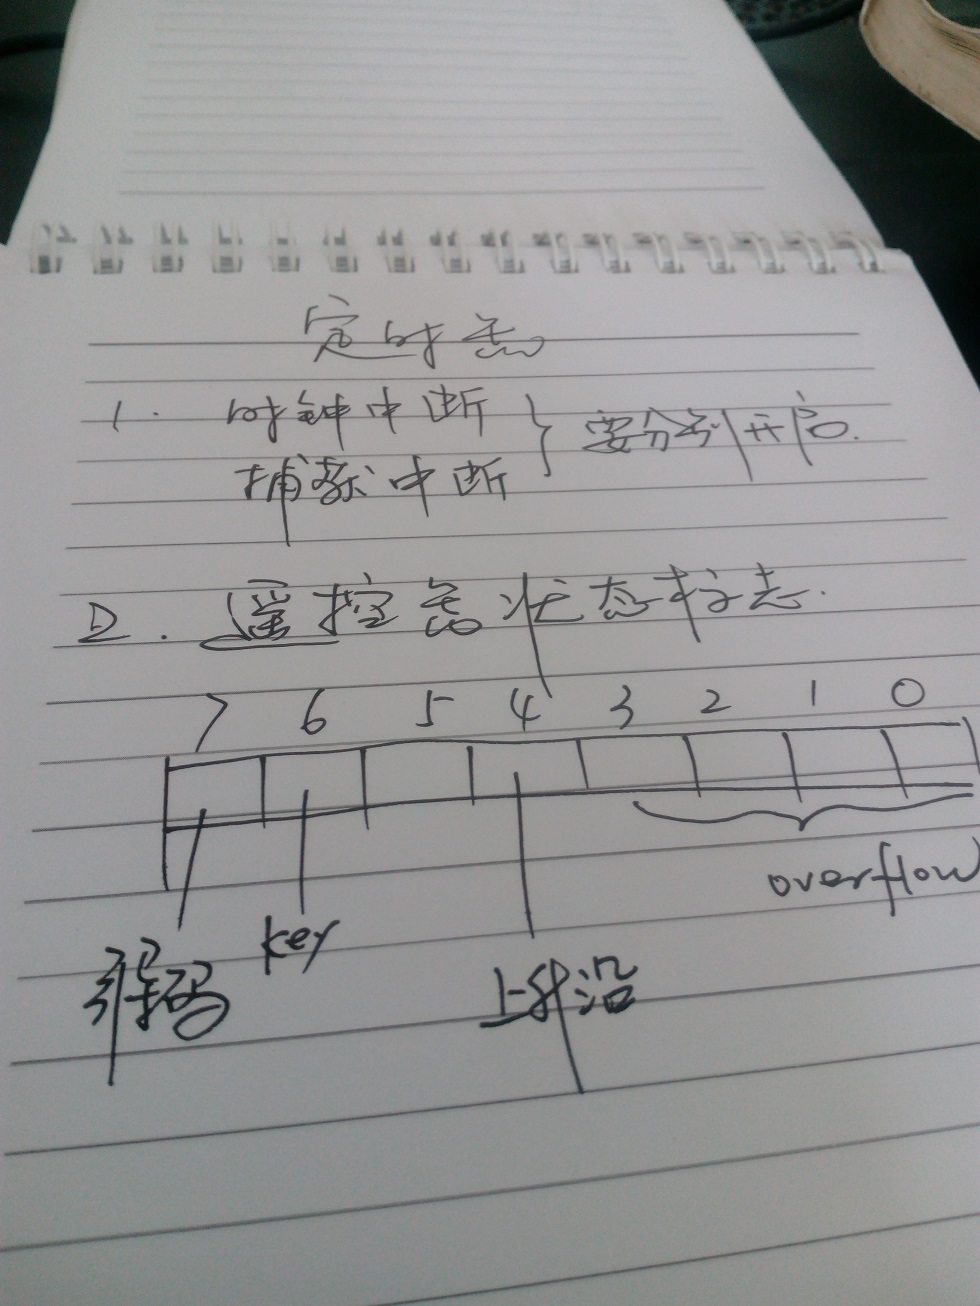 定时器
1. 时钟中断 } 要分别开启.
捕获中断
2. 遥控器状态标志.
7 6 5 4 3 2 1 0
overflow
key
引导码 上升沿